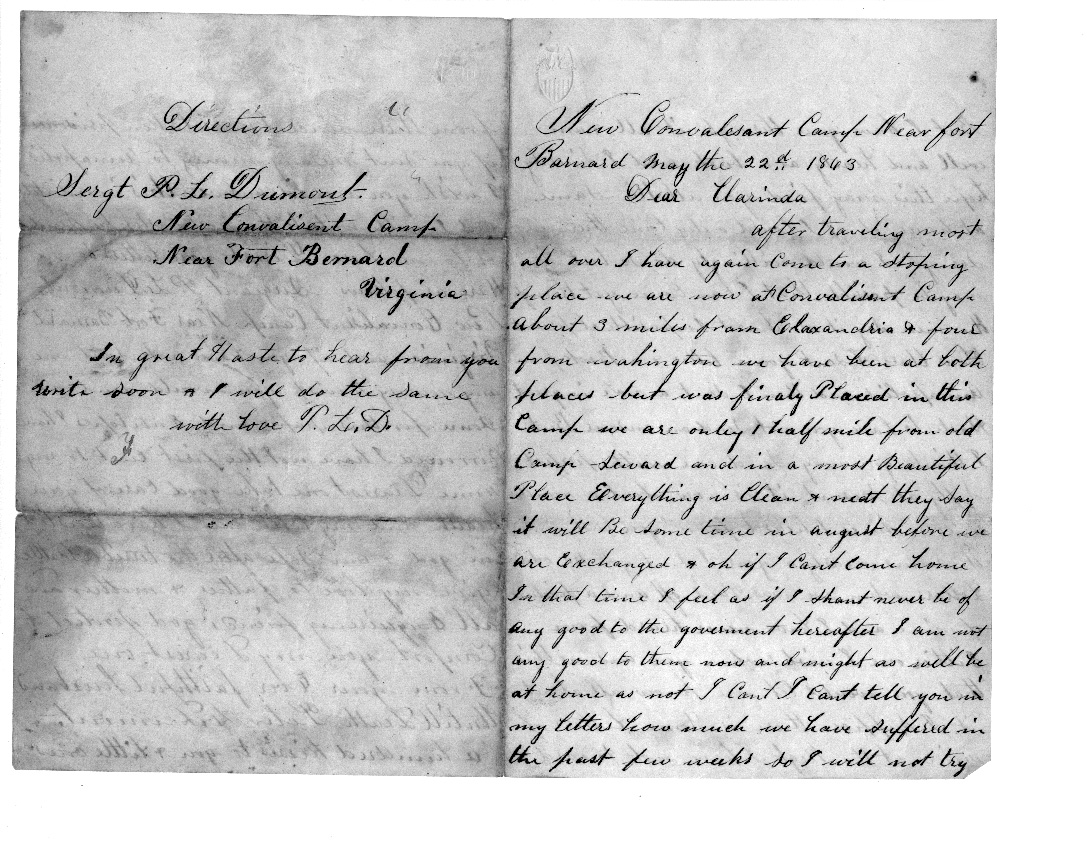 Directions
Sergt P. L. Dumont.
New Convalisent Camp
Near Fort Bernard
Virginia
In great Haste to hear from you
write soon & I will do the same
with love P. L. D.
New Convalesant Camp Near fort
Barnard May the 22d 1863
Dear Clarinda
after traveling most
all over I have again Come to a stoping
place we are now at Convalisent Camp
About 3 miles from Elaxandria & four
from wahington we have been at both
places but was finaly Placed in this
Camp we are only 1 half mile from old
Camp Seward and in a most Beautiful
Place Everything is Clean & neat they say
it will Be some time in august before we
are Exchanged & oh if I Cant Come home
In that time I feel as if I shant never be of
any good to the goverment hereafter I am not
any good to them now and might as well be
at home as not I Cant I Cant tell you in
my letters how much we have suffered in
the past few weeks so I will not try